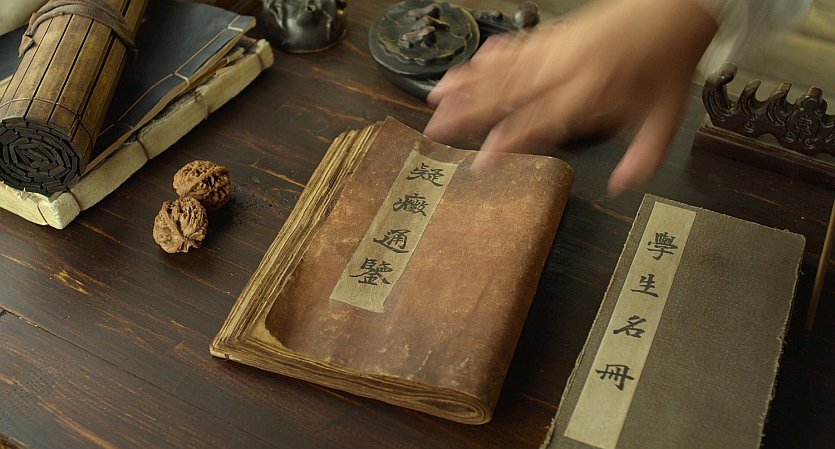 疑癥通鑒
學生名冊